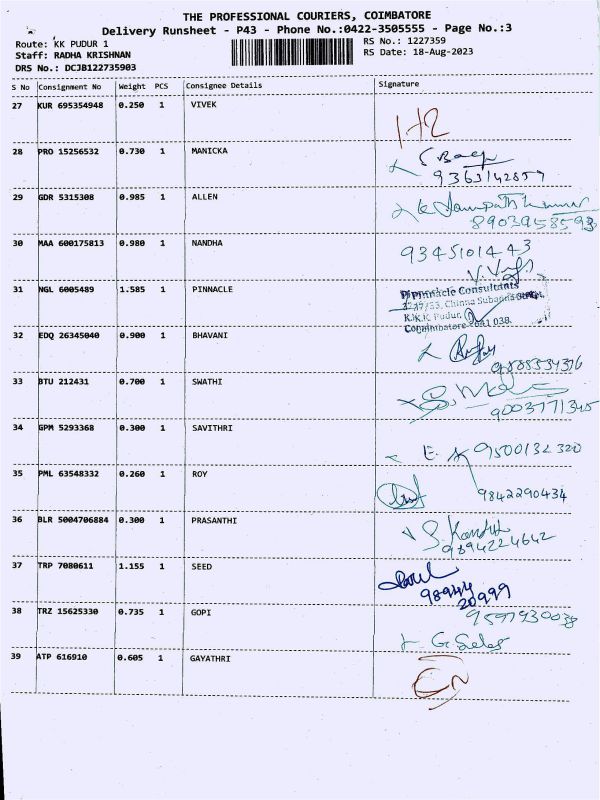 THE PROFESSIONAL COURIERS, COIMBATORE
Delivery Runsheet - P43 - Phone No.:0422-3505555 - Page No.:3
Route: KK PUDUR 1
RS No.: 1227359
Staff: RADHA KRISHNAN
RS Date: 18-Aug-2023
DRS No.: DCJB122735903
S No Consignment No Weight PCS Consignee Details Signature
27 KUR 695354948 0.250 1 VIVEK
28 PRO 15256532 0.730 1 MANICKA
9363142857
29 GDR 5315308 0.985 1 ALLEN
8903958593
30 MAA 600175813 0.980 1 NANDHA
9345101443
31 NGL 6005489 1.585 1 PINNACLE
Pinnacle Consultants
K.K. Pudur,
Coimbatore - 641 038.
32 EDQ 26345040 0.900 1 BHAVANI
33 BTU 212431 0.700 1 SWATHI
9003771345
34 GPM 5293368 0.300 1 SAVITHRI
9500132320
35 PML 63548332 0.260 1 ROY
9842290434
36 BLR 5004706884 0.300 1 PRASANTHI
9894224642
37 TRP 7080611 1.155 1 SEED
98944
20999
38 TRZ 15625330 0.735 1 GOPI
9597930038
39 ATP 616910 0.605 1 GAYATHRI